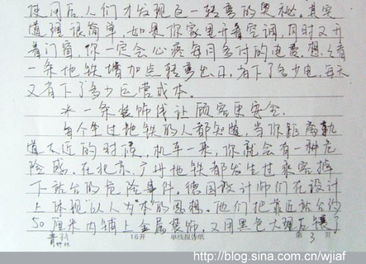 使用后人们才发现这一转弯的奥秘。其实
道理很简单，如果你家里开着空调，同时又开
着门窗，你一定会心疼每月多付的电费。想想看
一条地铁增加些转弯出口，省下了多少电，每天
又省下了多少运营成本。
*一条装饰线让顾客更安全
每个坐过地铁的人都知道，当你距离轨
道太近的时候，机车一来，你就会有一种危
险感。在北京、广州地铁都发生过乘客掉
下站台的危险事件。德国设计师们在设计
上体现"以人为本"的思想。他们把靠近站台约
50厘米内铺上金属装饰，又用黑色大理石嵌了
16开 单线报告纸
第 3 页
http://blog.sina.com.cn/wjiaf